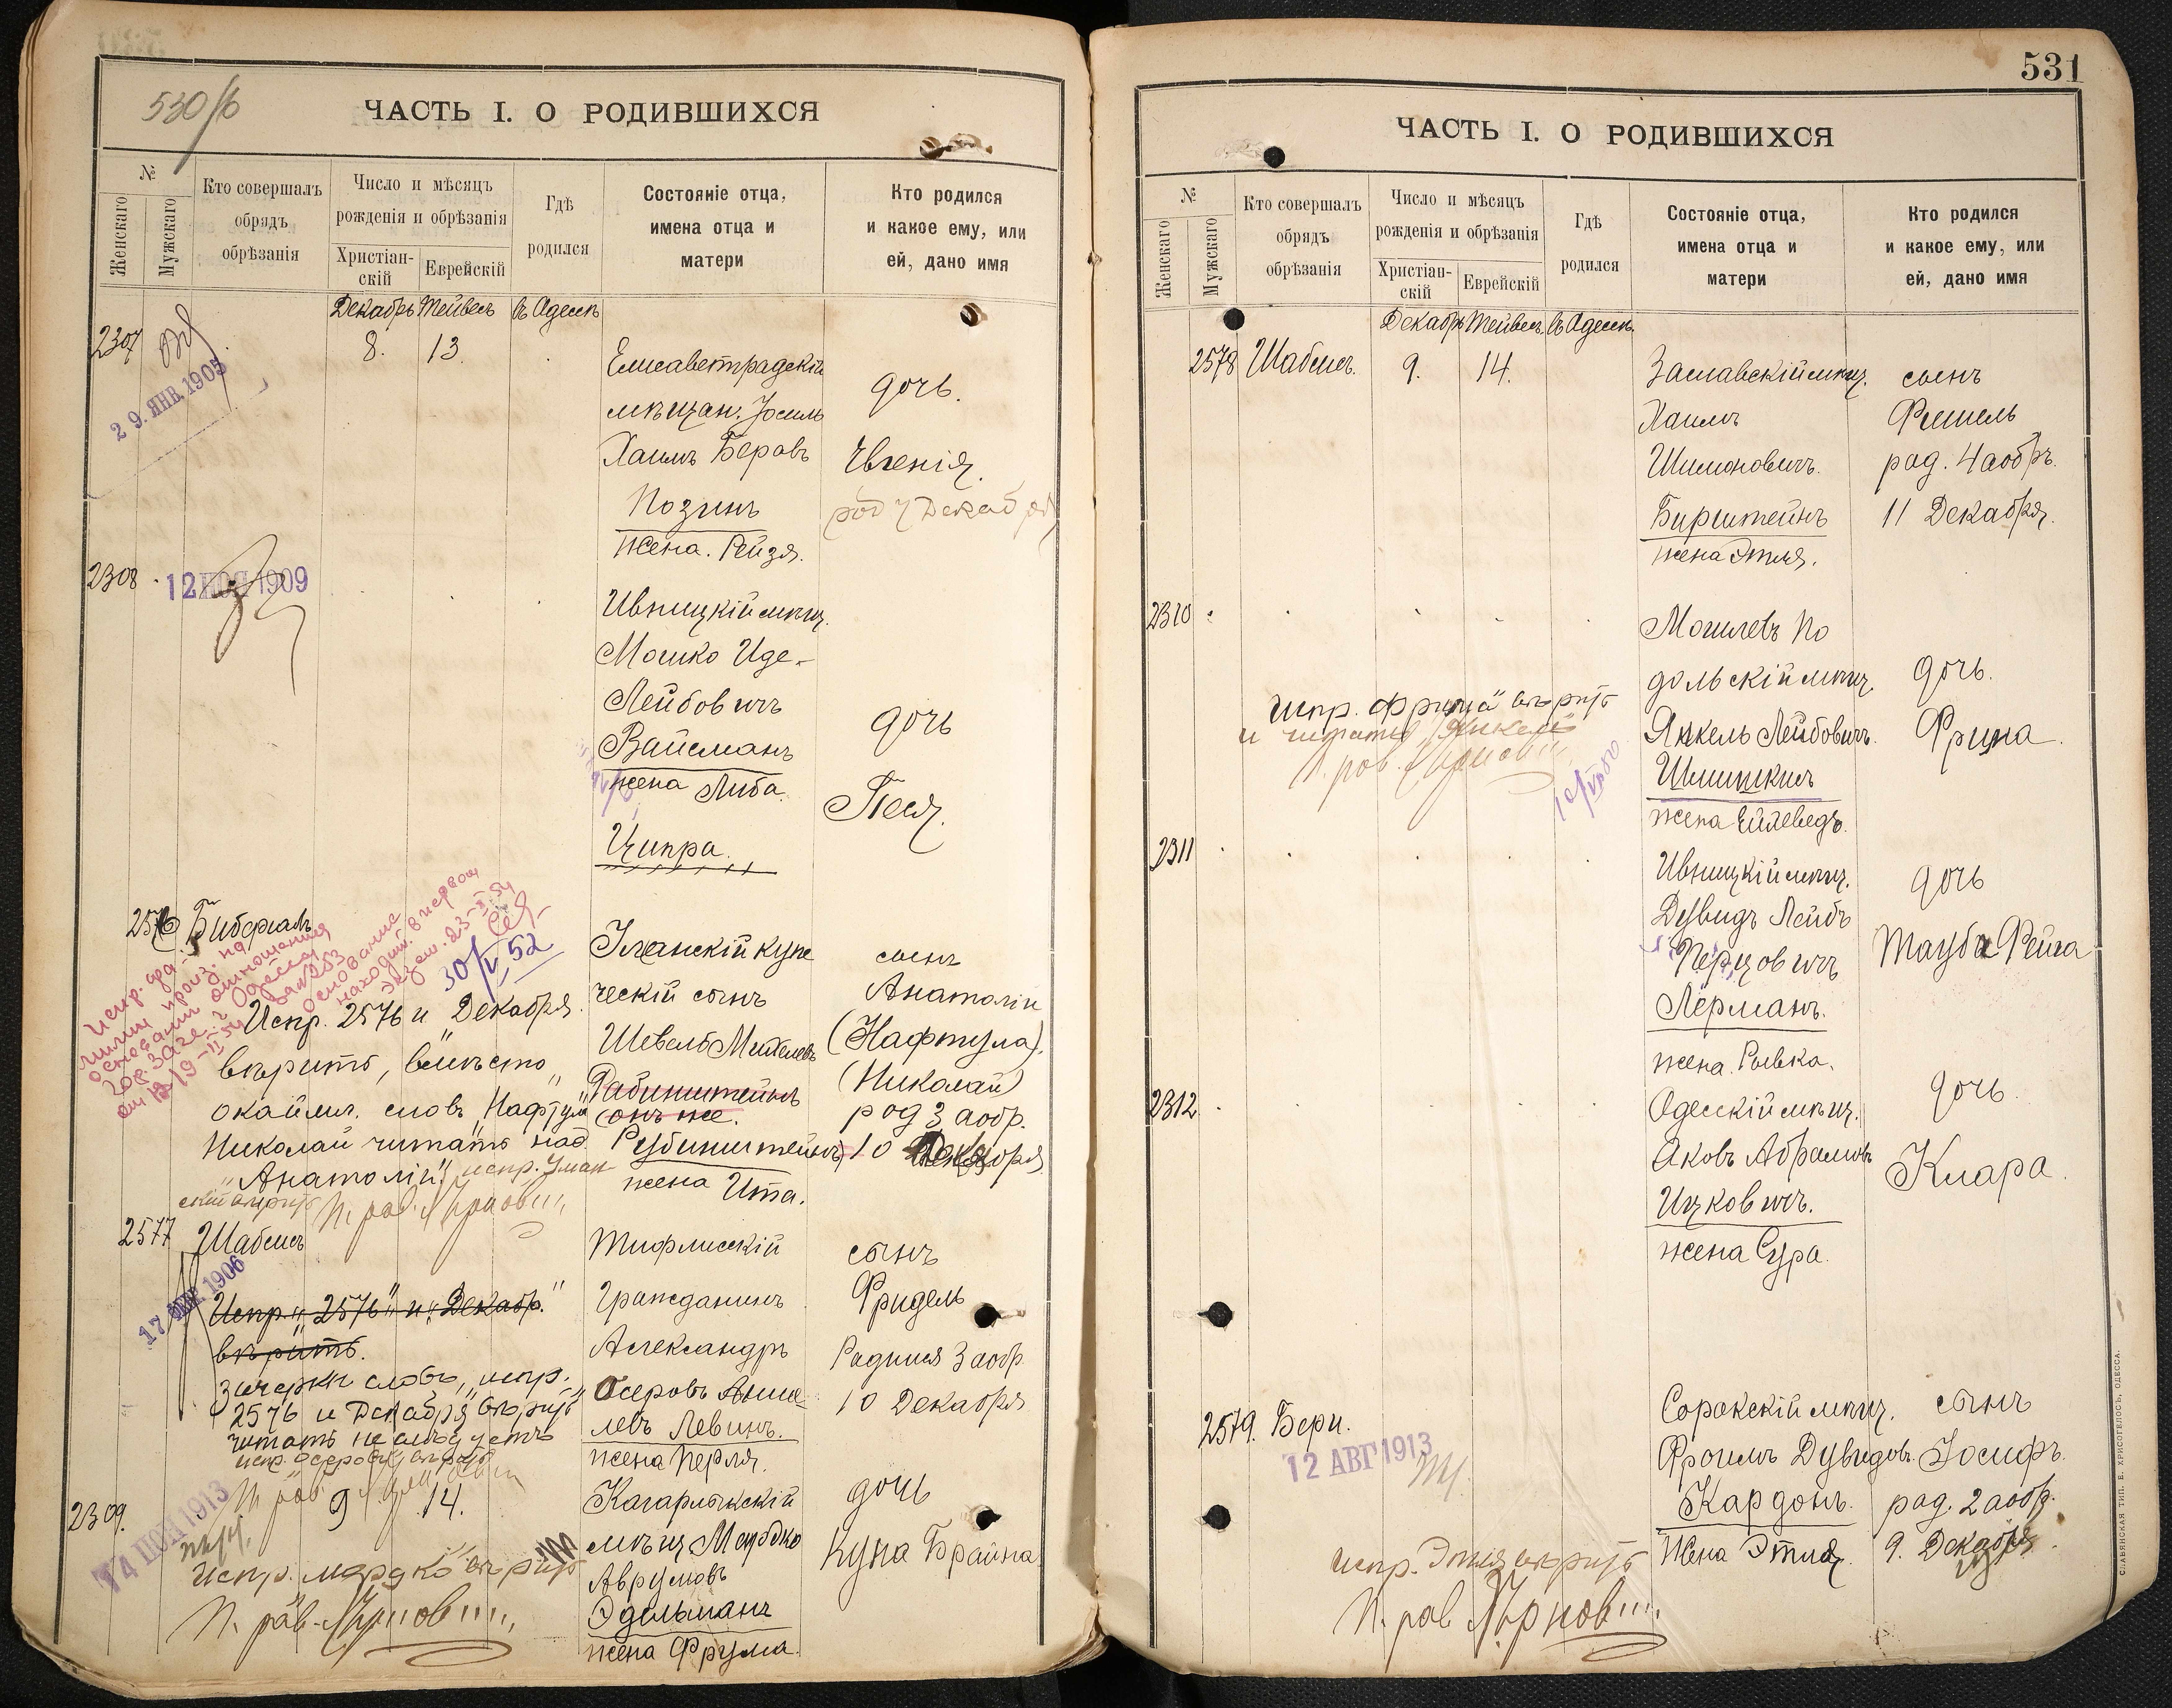 530/б
ЧАСТЬ I. О РОДИВШИХСЯ
№
Женскаго
Мужскаго
Кто совершалъ
обрядъ
обрѣзанія
Число и мѣсяцъ
рожденія и обрѣзанія
Христіан-
скій
Еврейскій
Гдѣ
родился
Состояніе отца,
имена отца и
матери
Кто родился
и какое ему, или
ей, дано имя
Декабрь Тейвесъ въ Одессѣ
2307
29. ЯНВ. 1905
8. 13.
Елисаветградскій
мѣщан. Іосиль
Хаимъ Беровъ
Позинъ
жена. Рейзя.
дочь.
Евгенія.
род 7 Декабря
2308
12 НОЯ 1909
Ивницкій мѣщ.
Мошко Иде-
Лейбовичъ
Вайсманъ
жена Либа.
Ципра
дочь
Песя.
2576 Бибергалъ
30/V 52
Испр. 2576 и Декабря
вѣрить, вмѣсто
окаймл. словъ „Нафтула
Николай читать над
„Анатолій“ испр. Уман-
скій вѣрить
Уманскій купе
ческій сынъ
Шевель Михелевъ
Рабинштейнъ
(онъ же.
Рубинштейнъ)
жена Ита.
сынъ
Анатолій
(Нафтула).
(Николай)
род 3 аобр.
10 Декабря
2577 Шабсисъ
17 1906
Испр „2576“ и „Декабр.“
вѣрить.
Зачеркн словъ, испр.
2576 и Декабря вѣрить
читать не слѣдуетъ
Тифлисскій
Гражданинъ
Александръ
Осеровъ Анше-
левъ Левинъ.
жена Перля.
сынъ
Фридель
Родился 3 аобр.
10 Декабря
2309.
9 14.
1913
Испр. „мордко“ вѣрить
Кагарлыкскій
мѣщ Мордко
Аврумовъ
Эдельманъ
жена Фрума.
дочь
Куна Брайна
531
ЧАСТЬ I. О РОДИВШИХСЯ
№
Женскаго
Мужскаго
Кто совершалъ
обрядъ
обрѣзанія
Число и мѣсяцъ
рожденія и обрѣзанія
Христіан-
скій
Еврейскій
Гдѣ
родился
Состояніе отца,
имена отца и
матери
Кто родился
и какое ему, или
ей, дано имя
Декабрь Тейвесъ въ Одессѣ
2578 Шабсисъ. 9. 14.
Заславскій мѣщ.
Хаимъ
Шимоновичъ.
Бирштейнъ
жена Этля.
сынъ
Фишель
род. 4 аобръ.
11 Декабря.
2310
испр. „Фрима“ вѣрить
и читать „Янкель
Могилевъ По
дольскій мѣщ.
Янкель Лейбовичъ.
Шмишкисъ
жена Ейлеведъ.
дочь.
Фрима.
2311
Ивницкій мѣщ.
Дувидъ Лейбъ
Перцовичъ
Лерманъ.
жена. Рывка.
дочь
Тауба Рейга
2312
Одесскій мѣщ.
Яковъ Абрамовъ
Ицковичъ.
жена Сура.
дочь.
Клара.
2579. Бери.
12 АВГ 1913
испр. Этля вѣрить
Сорокскій мѣщ.
Фроимъ Дувидов.
Кардонъ.
жена Этля.
сынъ
Іосифъ.
род. 2 аобр.
9. Декабря.
СЛАВЯНСКАЯ ТИП. Е. ХРИСОГЕЛОСЪ, ОДЕССА.